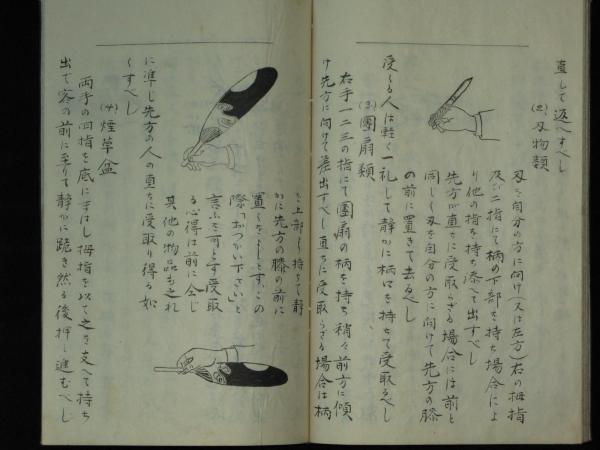 直して返へすべし
(2)刃物類
刃を自分の方に向け(又は左方)右の拇指
及び二指にて柄の下部を持ち場合によ
り他の指を持ち添へて出すべし
先方が直ちに受取らざる場合には前と
同じく刃を自分の方に向けて先方の膝
の前に置きて去るべし
受くる人は軽く一礼して静かに柄口を持ちて受取るべし
(3)團扇類
右手一二三の指にて團扇の柄を持ち稍々前方に傾
け先方に向けて差出すべし直ちに受取らざる場合は柄
を上部に持ちて静
かに先方の膝の前に
置くをよしとす、この
際「おつかい下さい」と
言ふを可とす受取
る心得は前に仝じ
其他の物品も之れ
に準じ先方の人の直ちに受取り得る如
くすべし
(4)煙草盆
両手の四指を底にまはし拇指を以て之を支へて持ち
出で客の前に至りて静かに跪き然る後押し進むべし